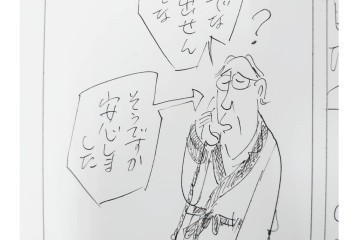 でな
出せん
しな
?
そうですか
安心しま
した